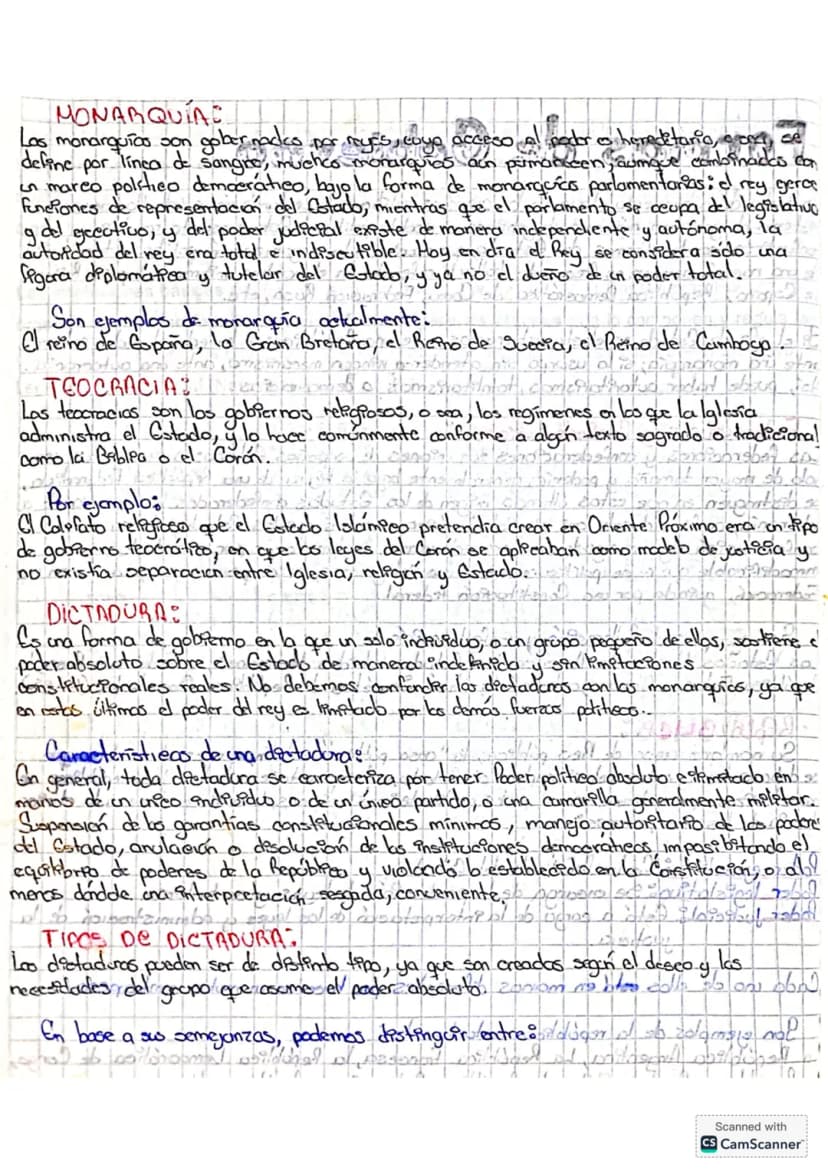 MONARQUÍA:
Las monarquías son gobernadas por reyes, cuyo acceso al poder es hereditario, se
define por línea de sangre, muchas monarquías aún permanecen, aunque combinadas con
un marco político democrático, bajo la forma de monarquías parlamentarias: el rey gerce
funciones de representación del Estado, mientras que el parlamento se ocupa del legislativo
y del ejecutivo, y del poder judicial existe de manera independiente y autónoma, la
autoridad del rey era total e indiscutible. Hoy en día el Rey se considera sólo una
figura diplomática y tutelar del Estado, y ya no el dueño de un poder total.
Son ejemplos de monarquía actualmente:
El reino de España, la Gran Bretaña, el Reino de Suecia, el Reino de Camboya.
TEOCRACIA:
Las teocracias son los gobiernos religiosos, o sea, los regímenes en los que la Iglesia
administra el Estado, y lo hace comúnmente conforme a algún texto sagrado o tradicional
como la Biblia o el Corán.
Por ejemplo:
El Califato religioso que el Estado Islámico pretendía crear en Oriente Próximo era un tipo
de gobierno teocrático, en que las leyes del Corán se aplicaban como modelo de justicia y
no existía separación entre Iglesia, religión y Estado.
DICTADURA:
Es una forma de gobierno en la que un solo individuo, o un grupo pequeño de ellos, sostiene e
poder absoluto sobre el Estado de manera indefinida y sin limitaciones
constitucionales reales. No debemos confundir las dictaduras con las monarquías, ya que
en estas últimas el poder del rey es limitado por las demás fuerzas políticas.
Características de una dictadura:
En general, toda dictadura se caracteriza por tener Poder político absoluto e ilimitado en
manos de un único individuo o de un único partido, o una camarilla generalmente militar.
Suspensión de las garantías constitucionales mínimas, manejo autoritario de los podere
del Estado, anulación o disolución de las instituciones democráticas imposibitando el
equilibrio de poderes de la República y violando lo establecido en la Constitución, o al
menos dándole una interpretación sesgada, conveniente.
TIPOS DE DICTADURA:
Las dictaduras pueden ser de distinto tipo, ya que son creados según el deseo y las
necesidades del grupo que asume el poder absoluto.
En base a sus semejanzas, podemos distinguir entre:
Scanned with
CS CamScanner